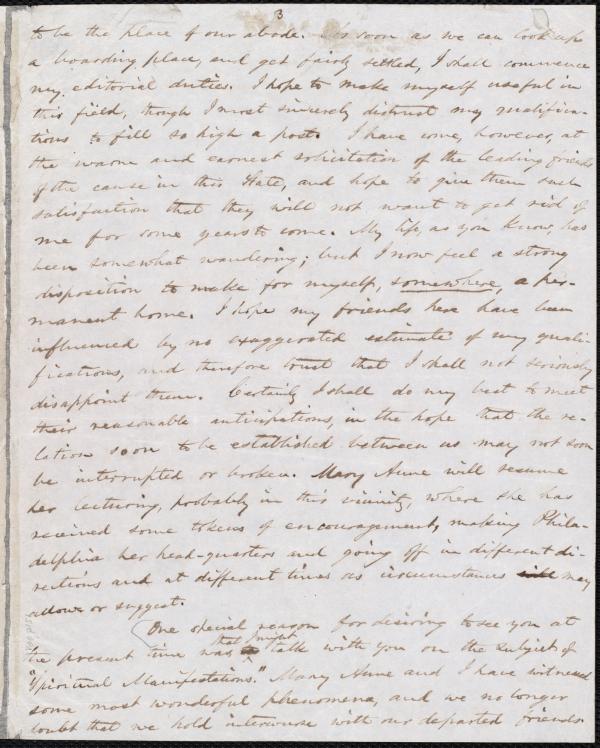 3
to be the place of our abode. As soon as we can look up
a boarding place, and get fairly settled, I shall commence
my editorial duties. I hope to make myself useful in
this field, though I most sincerely distrust my qualifica-
tions to fill so high a post. I have come, however, at
the warm and earnest solicitation of the leading friends
of the cause in this State, and hope to give them such
satisfaction that they will not want to get rid of
me for some years to come. My life, as you know, has
been somewhat wandering; but I now feel a strong
disposition to make for myself, somewhere, a per-
manent home. I hope my friends here have been
influenced by no exaggerated estimate of my quali-
fications, and therefore trust that I shall not seriously
disappoint them. Certainly I shall do my best to meet
their reasonable anticipations, in the hope that the re-
lation soon to be established between us may not soon
be interrupted or broken. Mary Anne will resume
her lecturing, probably in this vicinity, where she has
received some tokens of encouragement, making Phila-
delphia her head-quarters and going off in different di-
rections and at different times as circumstances will may
allow or suggest.
One special reason for desiring to see you at
the present time was that I might talk with you on the subject of
"Spiritual Manifestations." Mary Anne and I have witnessed
some most wonderful phenomena, and we no longer
doubt that we hold intercourse with our departed friends.